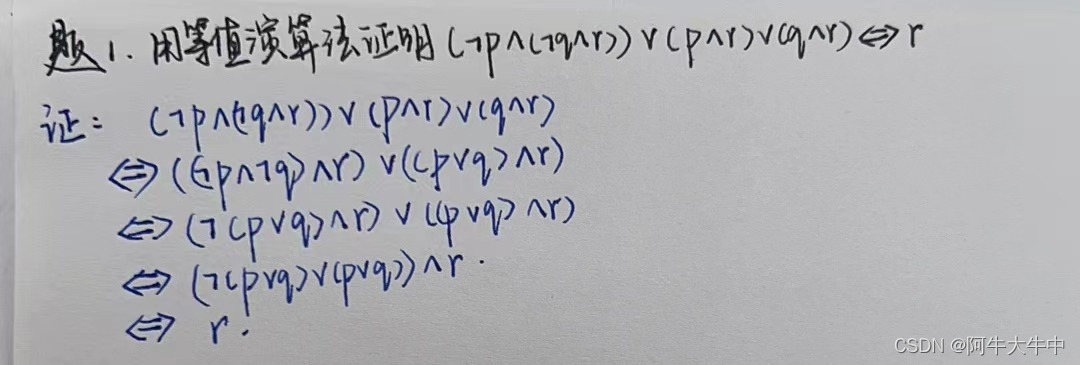 题1. 用等值演算法证明(¬p∧(¬q∧r))∨(p∧r)∨(q∧r)⇔r
证: (¬p∧(¬q∧r))∨(p∧r)∨(q∧r)
⇔((¬p∧¬q)∧r)∨((p∨q)∧r)
⇔(¬(p∨q)∧r)∨((p∨q)∧r)
⇔(¬(p∨q)∨(p∨q))∧r.
⇔ r.
CSDN @阿牛大牛中